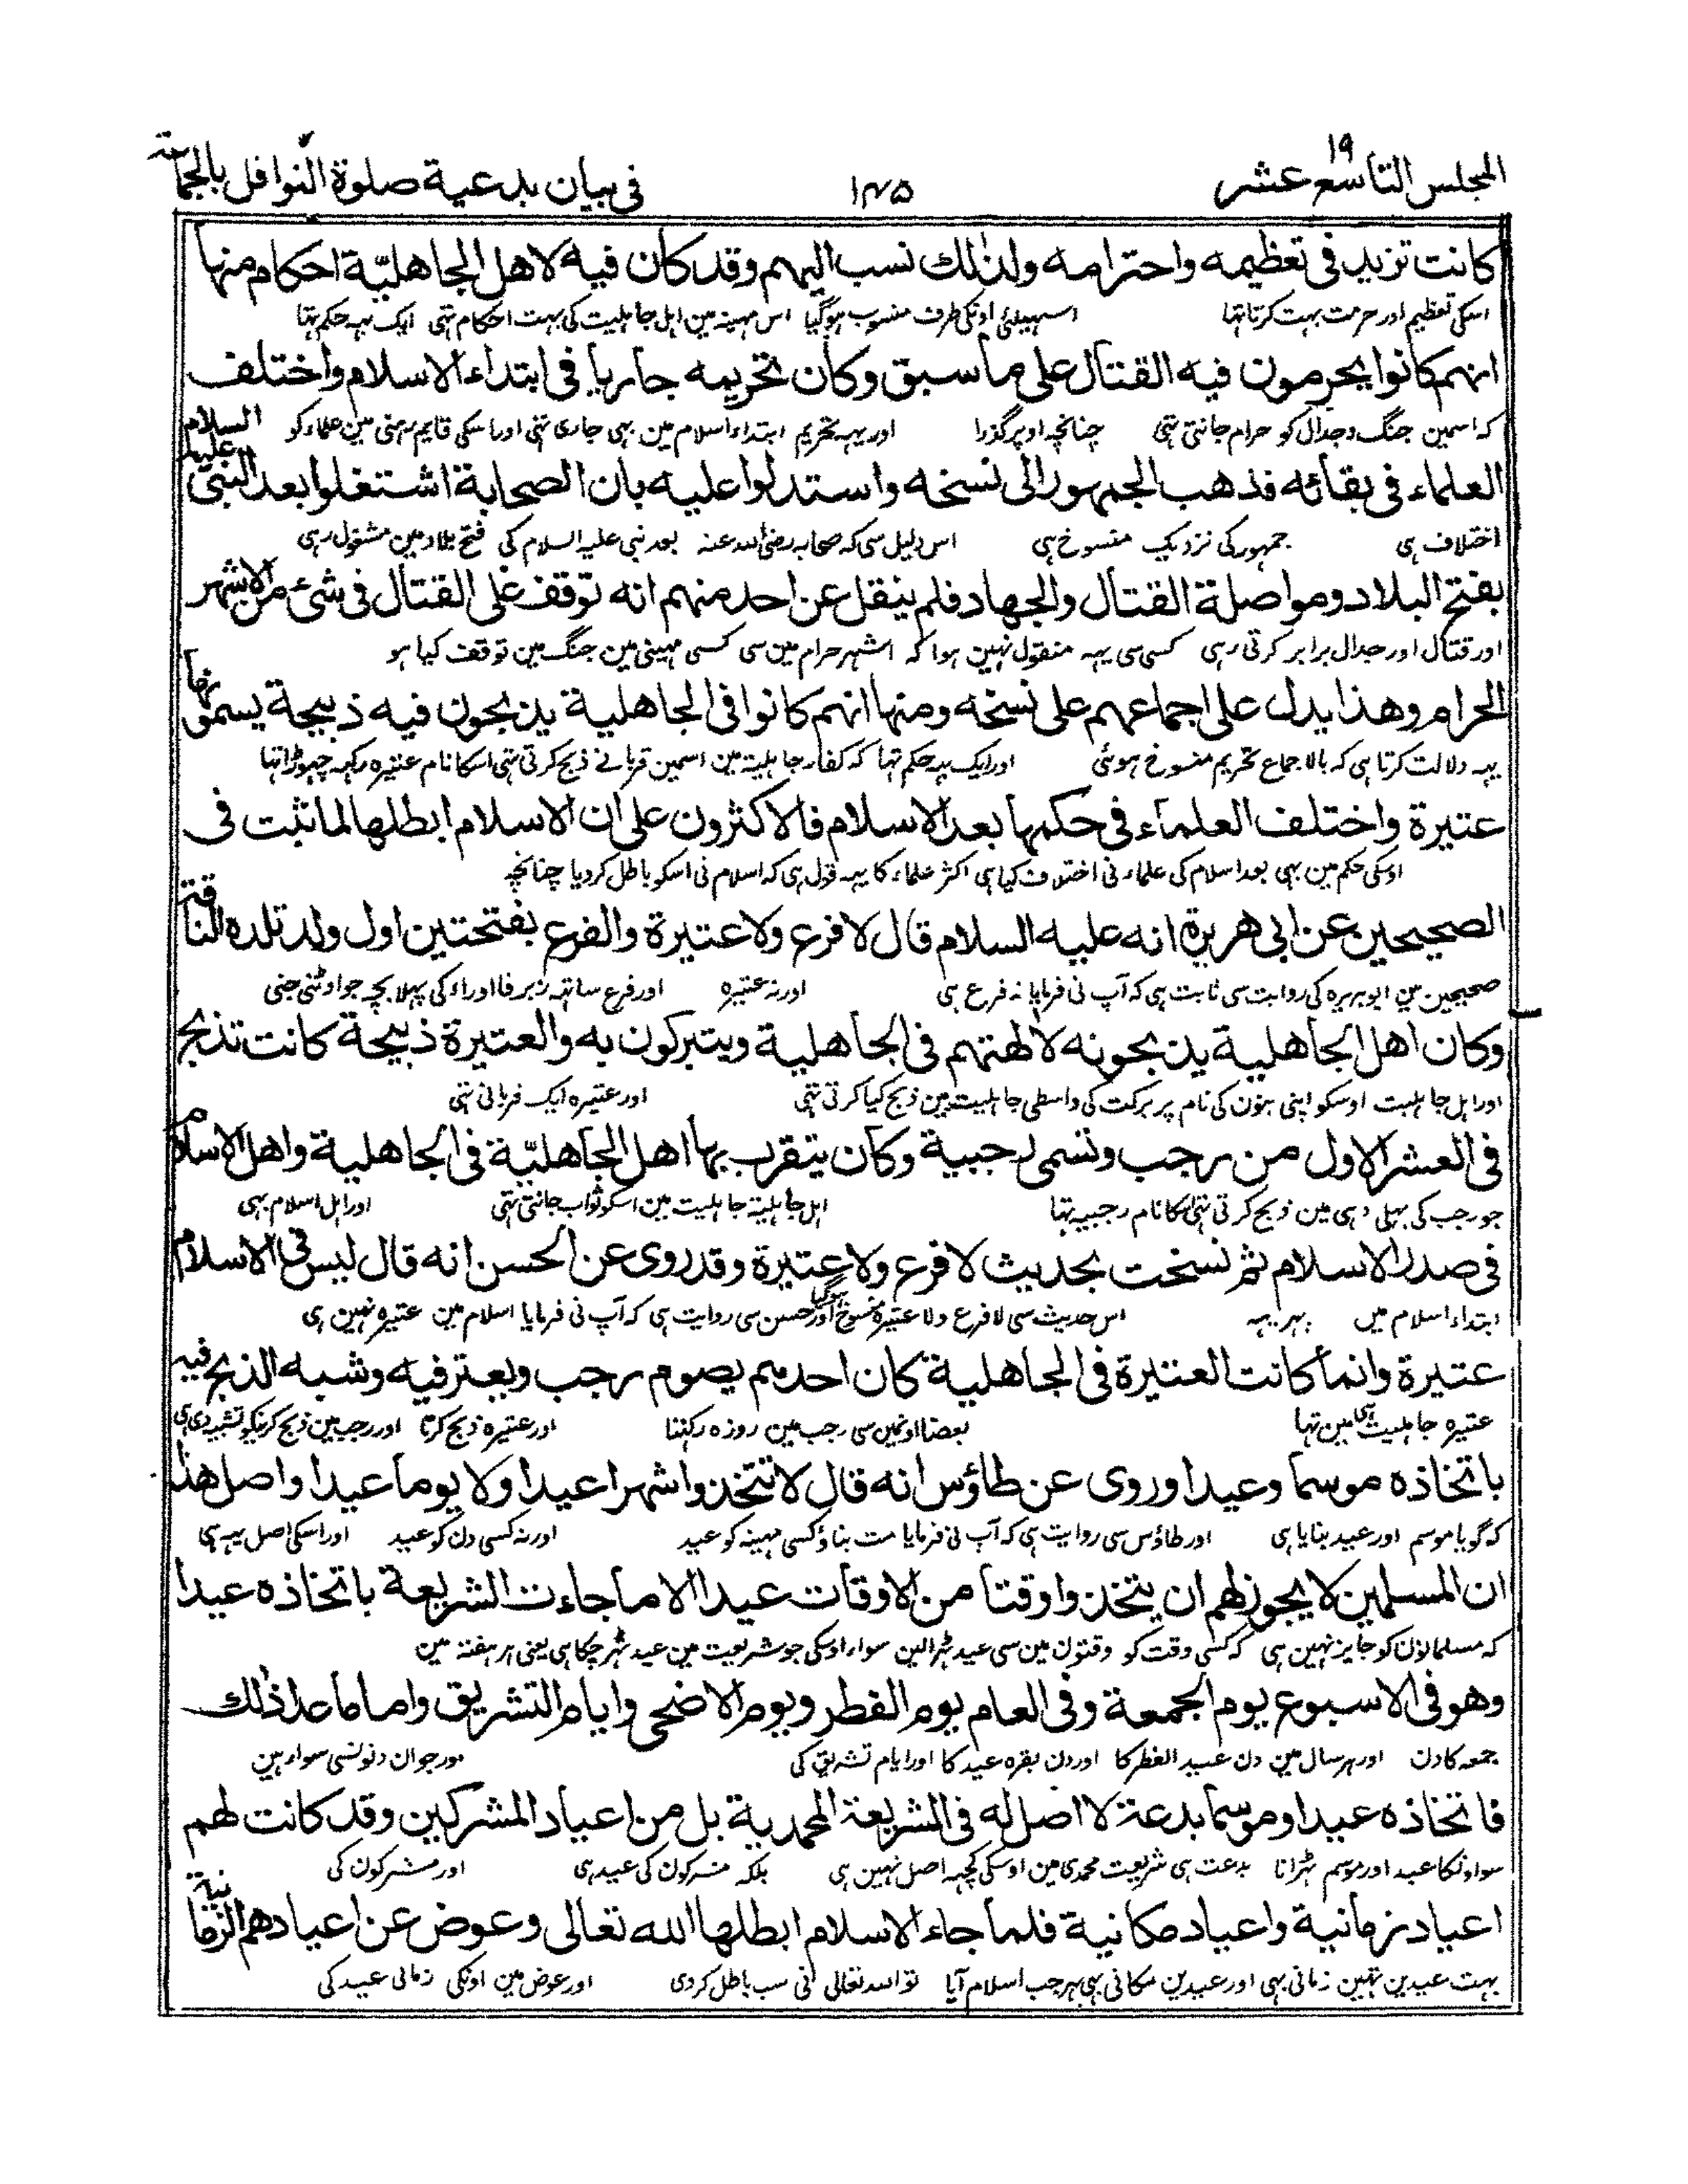 المجلس التاسع عشر ١٩
١٤٥
فى بيان بدعية صلوة النوافل بالجماعة
كانت تزيد فى تعظيمه واحترامه ولذلك نسب اليهم وقد كان فيه لاهل الجاهلية احكام منها
اسكى تعظيم اور حرمت بہت كرتا تہا اسيليئى اونكى طرف منسوب ہوگيا اس مہينہ مين اہل جاہليت كى بہت احكام تہى ايك يہہ حكم تہا
انهم كانوا يحرمون فيه القتال على ما سبق وكان تحريمه جاريا فى ابتداء الاسلام واختلف
كہ اسمين جنگ وجدال كو حرام جانتى تہى چنانچہ اوپر گذرا اور يہہ تحريم ابتداء اسلام مين بہى جارى تہى اور اسكى قايم رہنى مين علماء كو
العلماء فى بقائه فذهب الجمهور الى نسخه واستدلوا عليه بان الصحابة اشتغلوا بعد النبى عليه السلام
اختلاف ہى جمہور كى نزديك منسوخ ہى اس دليل سى كہ صحابہ رضى اللہ عنہ بعد نبى عليہ السلام كى فتح بلاد مين مشغول رہى
بفتح البلاد ومواصلة القتال والجهاد فلم ينقل عن احد منهم انه توقف على القتال فى شئ من الاشهر
اور قتال اور جدال برابر كرتى رہى كسى سى يہہ منقول نہين ہوا كہ اشہر حرام مين سى كسى مہينى مين جنگ مين توقف كيا ہو
الحرام وهذا يدل على اجماعهم على نسخه ومنها انهم كانوا فى الجاهلية يذبحون فيه ذبيحة يسمونها
يہہ دلالت كرتا ہى كہ بالاجماع تحريم منسوخ ہوئى اور ايك يہہ حكم تہا كہ كفار جاہليت مين اسمين قربانے ذبح كرتى تہى اسكا نام عتيرہ ركہہ چہوڑا تہا
عتيرة واختلف العلماء فى حكمها بعد الاسلام فالاكثرون على ان الاسلام ابطلها لما ثبت فى
اوسكى حكم مين بہى بعد اسلام كى علماء نى اختلاف كيا ہى اكثر علماء كا يہہ قول ہى كہ اسلام نى اسكو باطل كرديا چنانچہ
الصحيحين عن ابى هريرة انه عليه السلام قال لا فرع ولا عتيرة والفرع بفتحتين اول ولد تلده الناقة
صحيحين مين ابوہريرہ كى روايت سى ثابت ہى كہ آپ نى فرمايا نہ فرع ہى اور نہ عتيرہ اور فرع ساتہہ زبر فا اور راء كى پہلا بچہ جو اونٹنى جنى
وكان اهل الجاهلية يذبحونه لالهتهم فى الجاهلية ويتبركون به والعتيرة ذبيحة كانت تذبح
اور اہل جاہليت اوسكو اپنى بتون كى نام پر بركت كى واسطى جاہليت مين ذبح كيا كرتى تہى اور عتيرہ ايك قربانى تہى
فى العشر الاول من رجب وتسمى رجبية وكان يتقرب بها اهل الجاهلية فى الجاهلية واهل الاسلام
جو رجب كى پہلى دہى مين ذبح كرتى تہى اسكا نام رجبيہ تہا اہل جاہليت جاہليت مين اسكو ثواب جانتى تہى اور اہل اسلام بہى
فى صدر الاسلام ثم نسخت بحديث لا فرع ولا عتيرة وقد روى عن الحسن انه قال ليس فى الاسلام
ابتداء اسلام ميں پہر يہہ اس حديث سى لا فرع ولا عتيرة منسوخ ہوگيا اور حسن سى روايت ہى كہ آپ نى فرمايا اسلام مين عتيرہ نہين ہى
عتيرة وانما كانت العتيرة فى الجاهلية كان احدهم يصوم رجب ويعتر فيه وشبه الذبح فيه
عتيرہ جاہليت ہى مين تہا بعضا اونمين سى رجب مين روزہ ركہتا اور عتيرہ ذبح كرتا اور رجب مين ذبح كرنيكو تشبيہ دى ہى
باتخاذه موسما وعيدا وروى عن طاؤس انه قال لا تتخذوا شهرا عيدا ولا يوما عيدا واصل هذا
كہ گويا موسم اور عيد بنايا ہى اور طاؤس سى روايت ہى كہ آپ نى فرمايا مت بناؤ كسى مہينہ كو عيد اور نہ كسى دن كو عيد اور اسكى اصل يہہ ہى
ان المسلمين لا يجوز لهم ان يتخذوا وقتا من الاوقات عيدا الا ما جاءت الشريعة باتخاذه عيدا
كہ مسلمانون كو جايز نہين ہى كہ كسى وقت كو وقتون مين سى عيد ٹہرالين سواء اوسكى جو شريعت مين عيد ٹہر چكا ہى يعنى ہر ہفتہ مين
وهو فى الاسبوع يوم الجمعة وفى العام يوم الفطر ويوم الاضحى وايام التشريق واما ما عدا ذلك
جمعہ كا دن اور ہر سال مين دن عيد الفطر كا اور دن بقرہ عيد كا اور ايام تشريق كى اور جو ان دنونسى سواء ہين
فاتخاذه عيدا وموسما بدعة لا اصل له فى الشريعة المحمدية بل من اعياد المشركين وقد كانت لهم
سو اونكا عيد اور موسم ٹہرانا بدعت ہى شريعت محمدى مين اوسكى كچہہ اصل نہين ہى بلكہ مشركون كى عيد ہى اور مشركون كى
اعياد زمانية واعياد مكانية فلما جاء الاسلام ابطلها الله تعالى وعوض عن اعيادهم الزمانية
بہت عيدين تہين زمانى بہى اور عيدين مكانى بہى پہر جب اسلام آيا تو اللہ تعالى نى سب باطل كردى اور عوض مين اونكى زمانى عيد كى